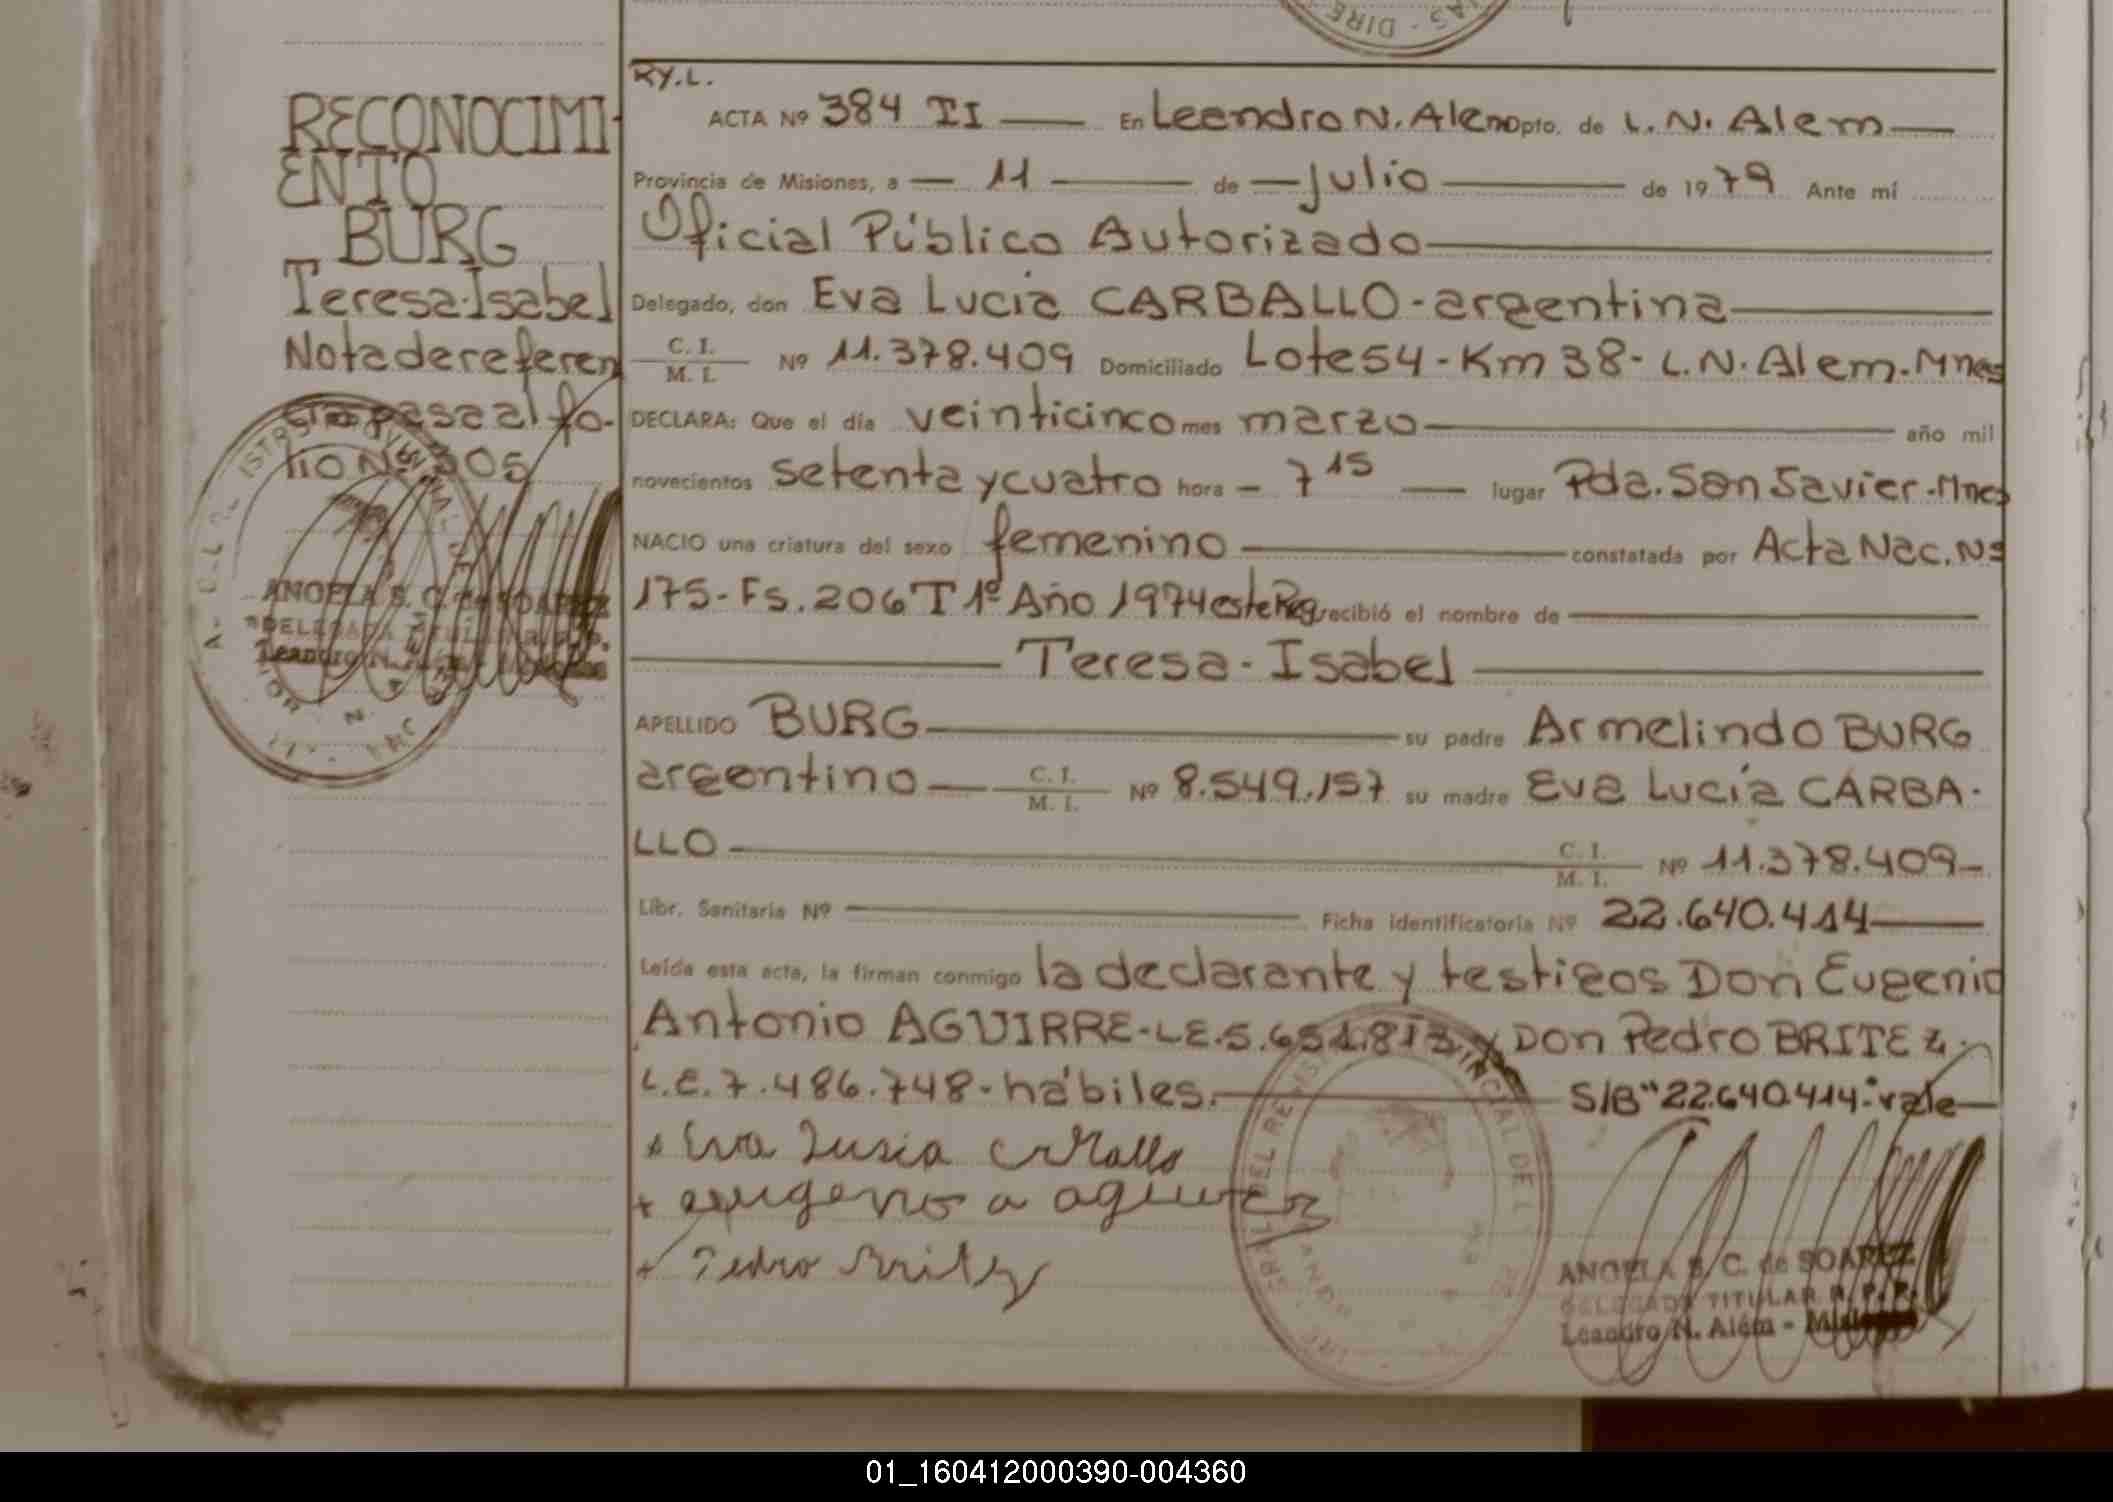 RY.L.
RECONOCIMI-
ENTO
BURG
Teresa-Isabel
Nota de referen
cia pasa al fo-
lio Nº 305
ACTA Nº 384 TI En Leandro N. Alem Dpto. de L. N. Alem
Provincia de Misiones, a 11 de julio de 1979 Ante mí
Oficial Público Autorizado
Delegado, don Eva Lucía CARBALLO - argentina
C. I. / M. I. Nº 11.378.409 Domiciliado Lote 54 - Km 38 - L.N. Alem. Mnes
DECLARA: Que el día veinticinco mes marzo año mil
novecientos setenta y cuatro hora 7 15 lugar Pda. San Javier - Mnes
NACIO una criatura del sexo femenino constatada por Acta Nac. Nº
175 - Fs. 206 T 1º Año 1974 este Reg recibió el nombre de
Teresa - Isabel
APELLIDO BURG su padre Armelindo BURG
argentino C. I. / M. I. Nº 8.549.157 su madre Eva Lucía CARBA-
LLO C. I. / M. I. Nº 11.378.409
Libr. Sanitaria Nº Ficha identificatoria Nº 22.640.414
Leída esta acta, la firman conmigo la declarante y testigos Don Eugenio
Antonio AGUIRRE - LE. 5.651.813 y Don Pedro BRITEZ.
L.E. 7.486.748 - hábiles. S/B "22.640.414" vale
+ Eva Lusia Carballo
+ eugeno a aguirrez
+ Pedro Britez
ANGELA S. C. de SOAREZ
DELEGADA TITULAR R. P. P.
Leandro N. Além - Misiones
ANGELA S. C. de SOAREZ
DELEGADA TITULAR R. P. P.
Leandro N. Além
01_160412000390-004360